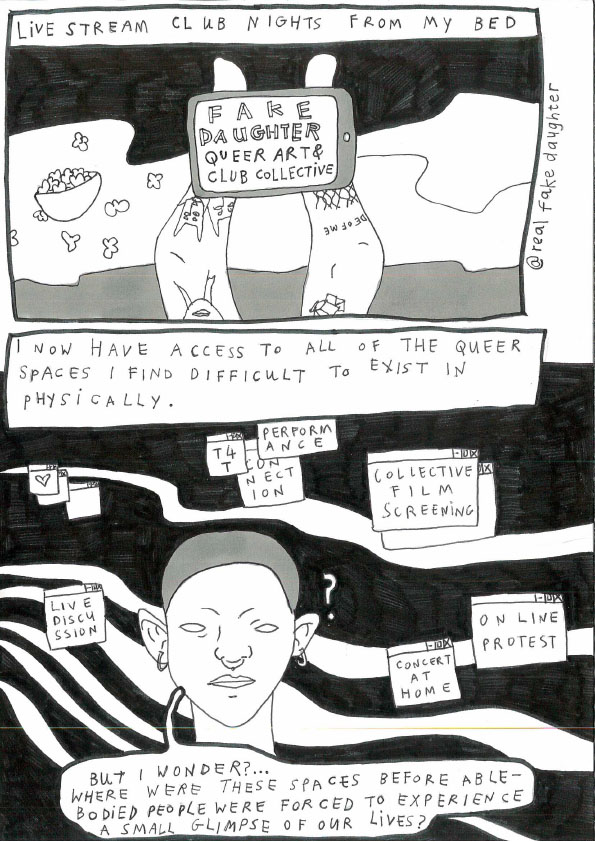 LIVE STREAM CLUB NIGHTS FROM MY BED
FAKE
DAUGHTER
QUEER ART &
CLUB COLLECTIVE
DE OF ME
@real fake daughter
I NOW HAVE ACCESS TO ALL OF THE QUEER
SPACES I FIND DIFFICULT TO EXIST IN
PHYSICALLY.
T4
T
PERFORM
ANCE
CON
NECT
ION
COLLECTIVE
FILM
SCREENING
LIVE
DISCU
SSION
?
CONCERT
AT
HOME
ONLINE
PROTEST
BUT I WONDER?...
WHERE WERE THESE SPACES BEFORE ABLE-
BODIED PEOPLE WERE FORCED TO EXPERIENCE
A SMALL GLIMPSE OF OUR LIVES?